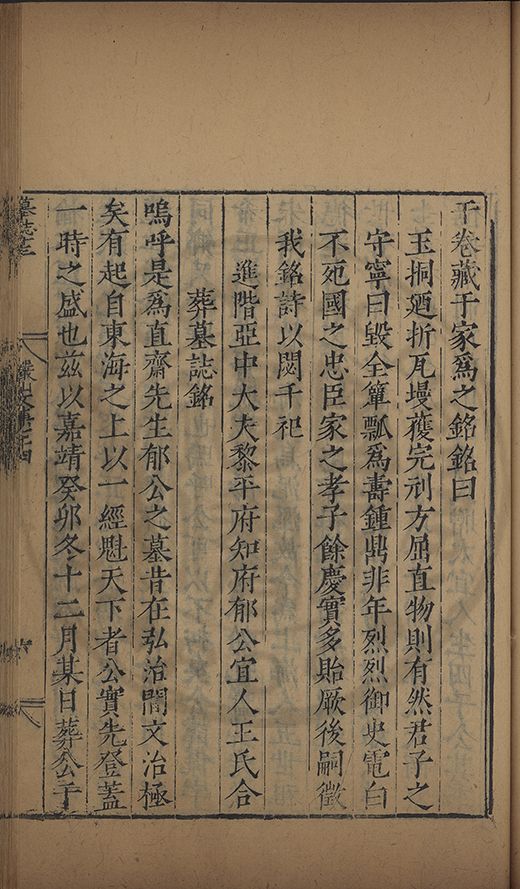 干卷藏于家爲之銘銘曰
玉挏廼折瓦墁蒦完刓方屈直物則有然君子之
守寧曰毀全簞瓢爲壽鍾鼎非年烈烈御史電白
不死國之忠臣家之孝子餘慶實多貽厥後嗣徵
我銘詩以閟千祀
進階亞中大夫黎平府知府郁公宜人王氏合
葬墓誌銘
嗚呼是爲直齋先生郁公之墓昔在弘治間文治極
矣有起自東海之上以一經魁天下者公實先登蓋
一時之盛也茲以嘉靖癸卯冬十二月某日葬公于